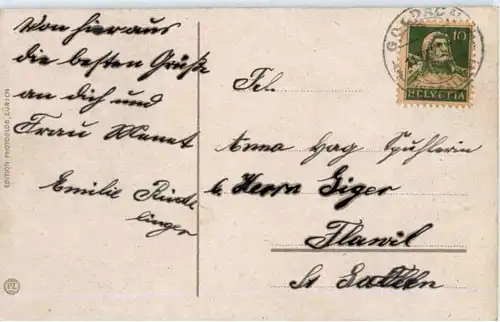 Von hier aus
die besten Grüße
an dich und
Frau Menet
Emilie
linger
EDITION PHOTOGLOB, ZÜRICH
PZ
GOLDAU
10
HELVETIA
Frl.
Anna Hag Spuhlerin
b. Herrn Giger
Flawil
St Gallen